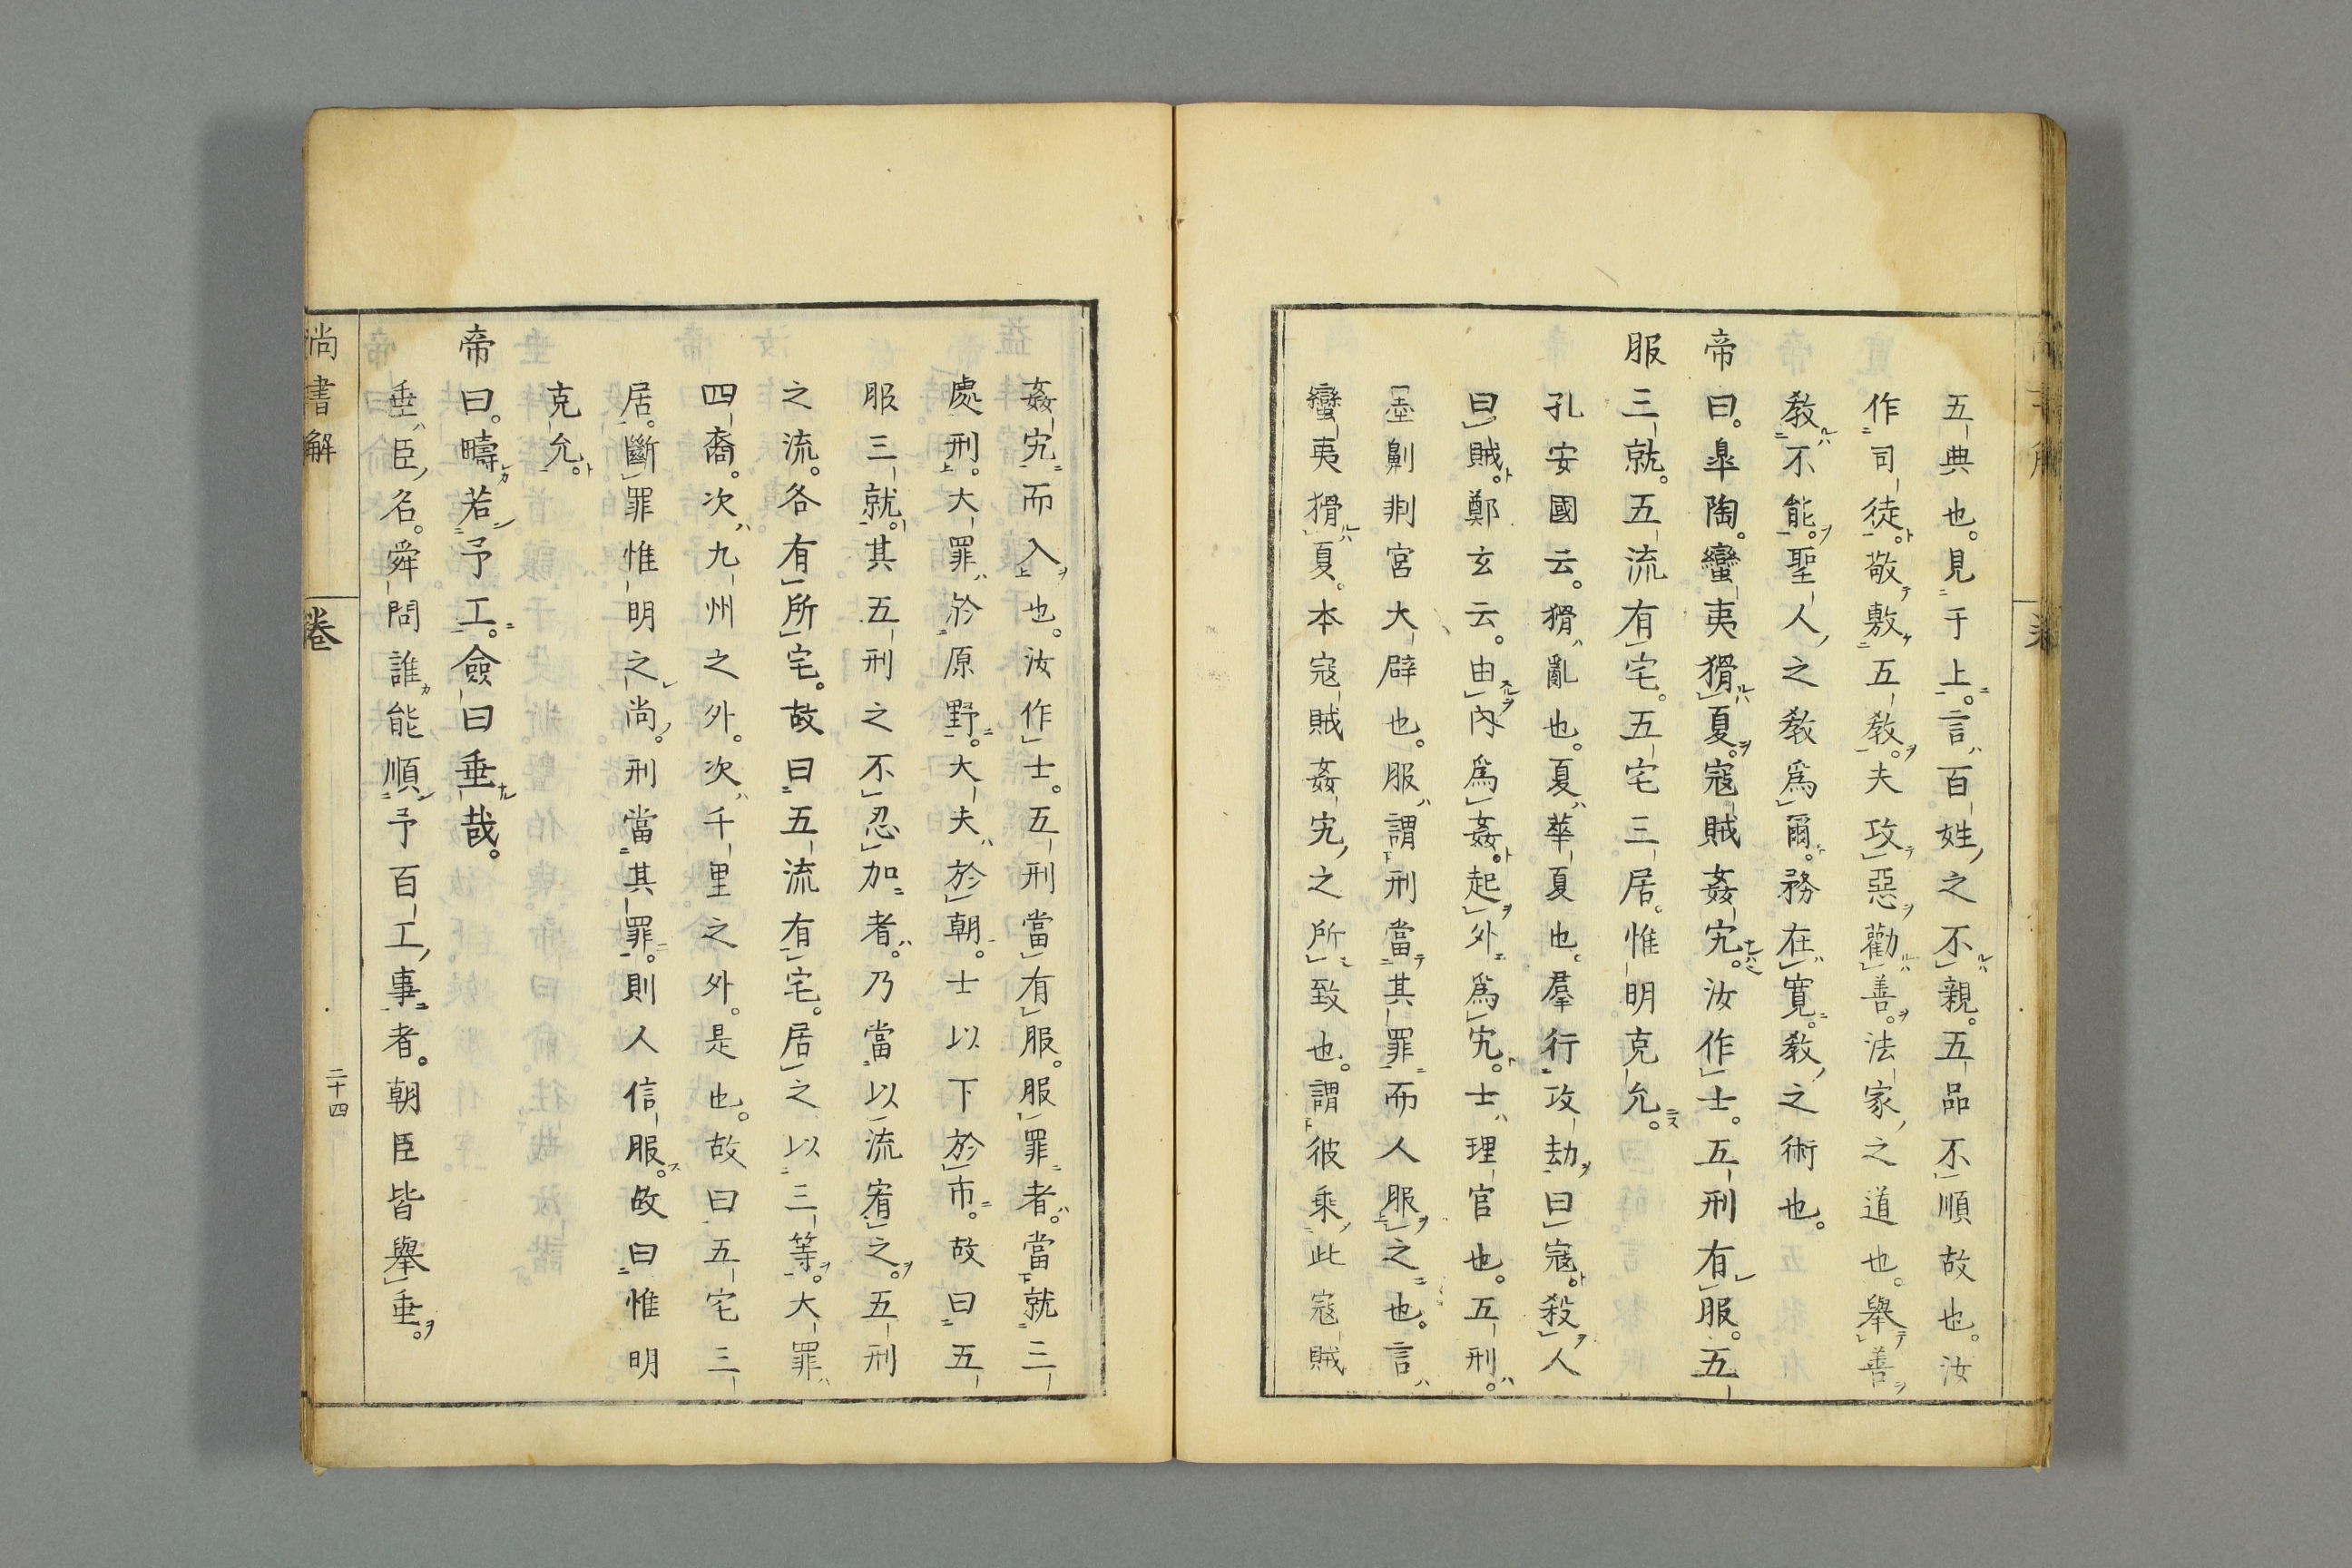 五典也。見于上。言百姓之不親。五品不順故也。汝
作司徒。敬敷五教。夫攻惡勸善。法家之道也。舉善
教不能。聖人之教爲爾。務在寬。教之術也。
帝曰。皐陶。蠻夷猾夏。寇賊姦宄。汝作士。五刑有服。五
服三就。五流有宅。五宅三居。惟明克允。
孔安國云。猾亂也。夏華夏也。羣行攻劫曰寇。殺人
曰賊。鄭玄云。由內爲姦。起外爲宄。士理官也。五刑。
墨劓剕宮大辟也。服謂刑當其罪而人服之也。言
蠻夷猾夏。本寇賊姦宄之所致也。謂彼乘此寇賊
姦宄而入也。汝作士。五刑當有服。服罪者。當就三
處刑。大罪於原野。大夫於朝。士以下於市。故曰五
服三就。其五刑之不忍加者。乃當以流宥之。五刑
之流。各有所宅。故曰五流有宅。居之以三等。大罪
四裔。次九州之外。次千里之外。是也。故曰五宅三
居。斷罪惟明之尚。刑當其罪。則人信服。故曰惟明
克允。
帝曰。疇若予工。僉曰垂哉。
垂臣名。舜問誰能順予百工事者。朝臣皆舉垂。
尚書解
卷
二十四